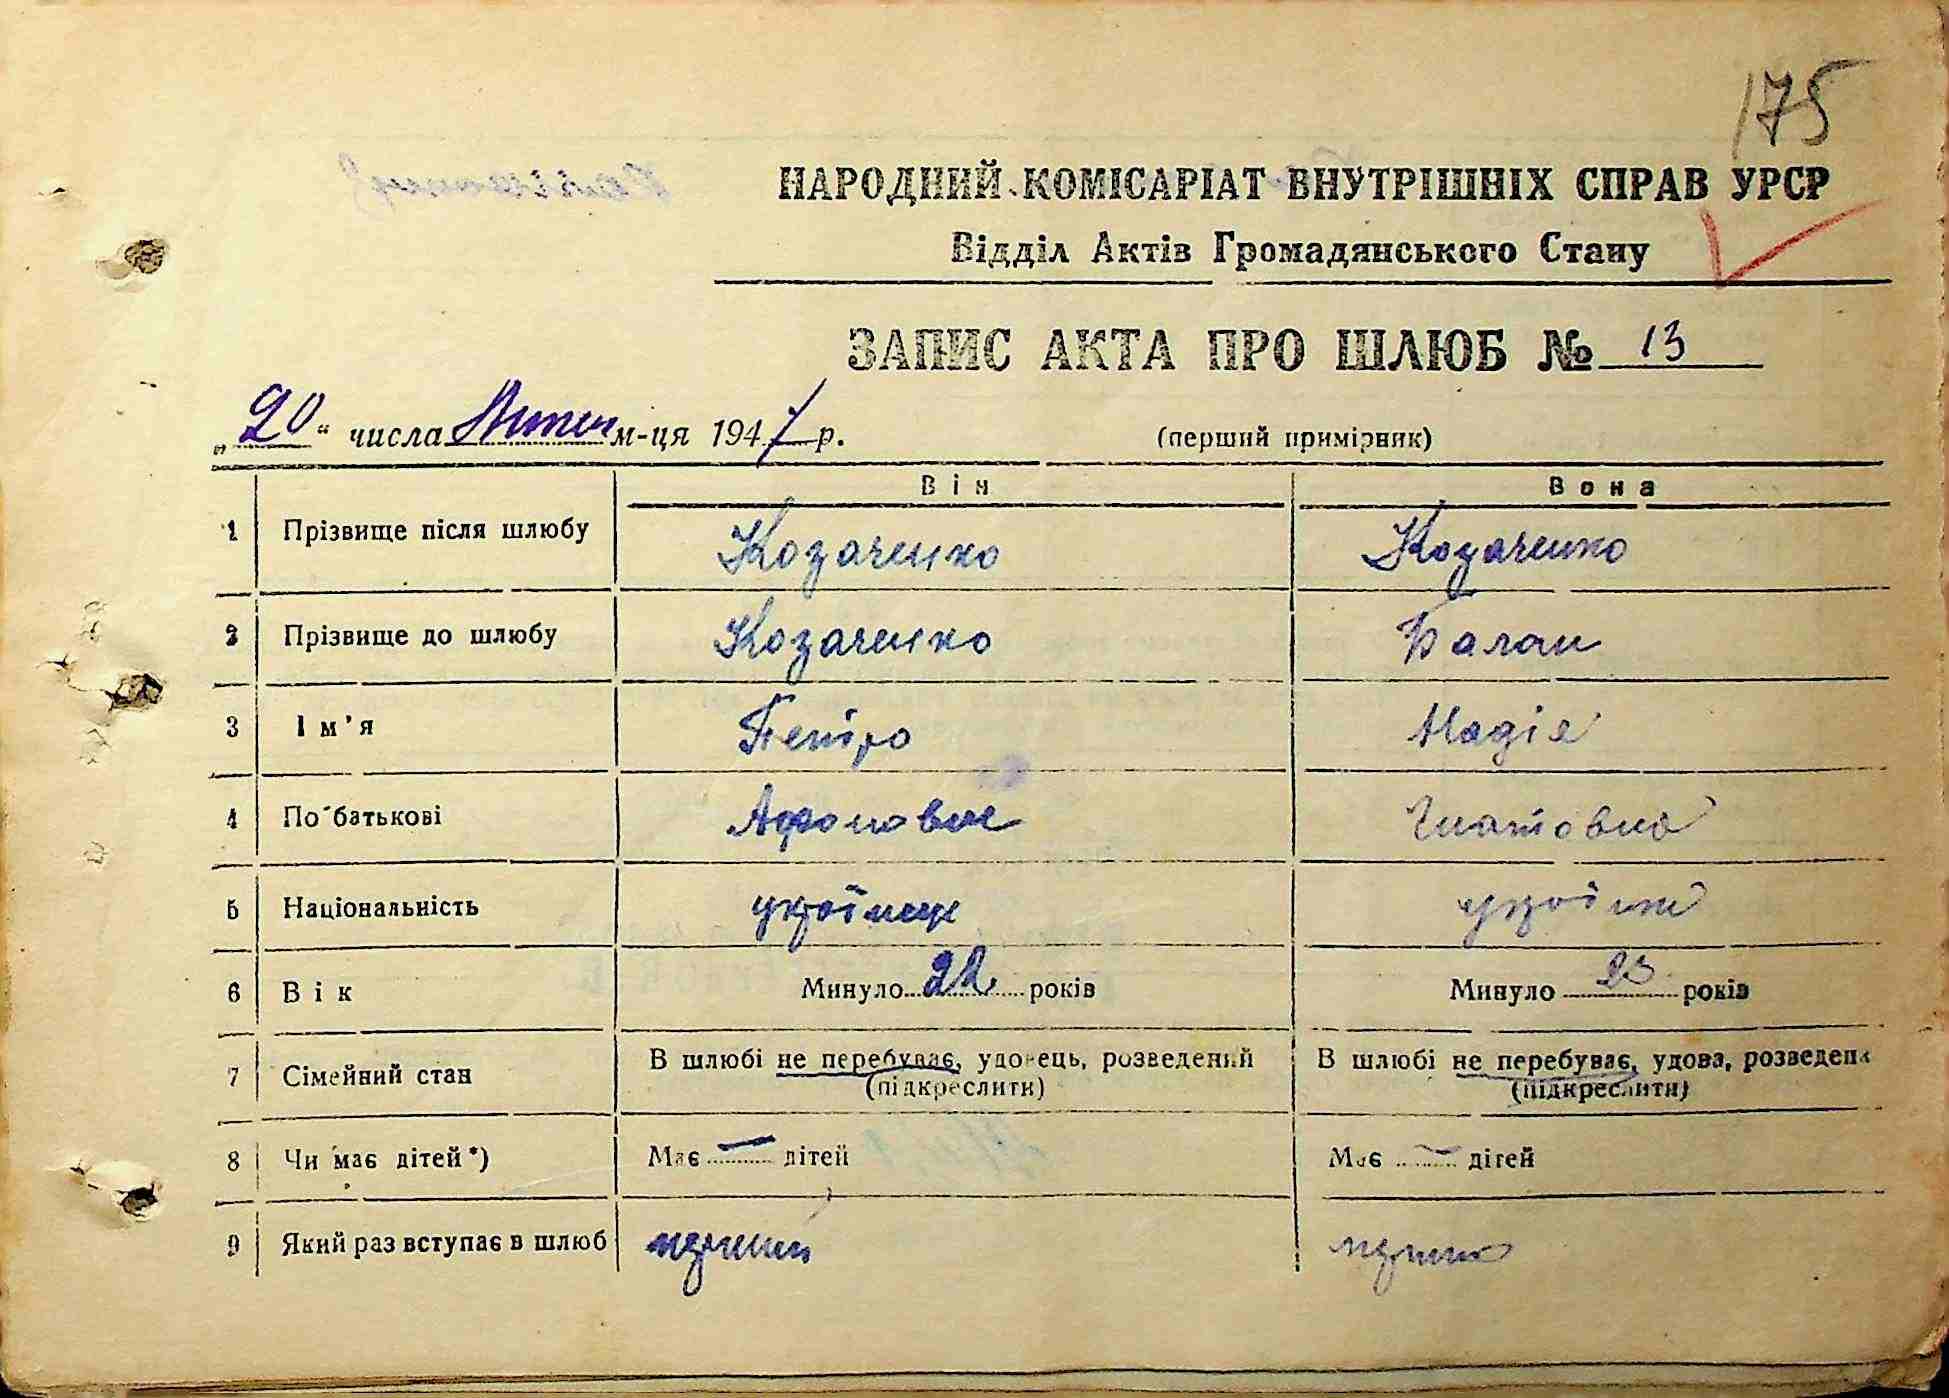 175
НАРОДНИЙ КОМІСАРІАТ ВНУТРІШНІХ СПРАВ УРСР
Відділ Актів Громадянського Стану
ЗАПИС АКТА ПРО ШЛЮБ № 13
„20“ числа м-ця 1947 р. (перший примірник)
Він Вона
1 Прізвище після шлюбу Козаченко Козаченко
2 Прізвище до шлюбу Козаченко Балан
3 Ім'я Петро Надія
4 По батькові Гнатовна
5 Національність українец
6 Вік Минуло 22 років Минуло 23 років
7 Сімейний стан В шлюбі не перебуває, удовець, розведений В шлюбі не перебуває, удова, розведена
(підкреслити) (підкреслити)
8 Чи має дітей*) Має — дітей Має — дітей
9 Який раз вступає в шлюб